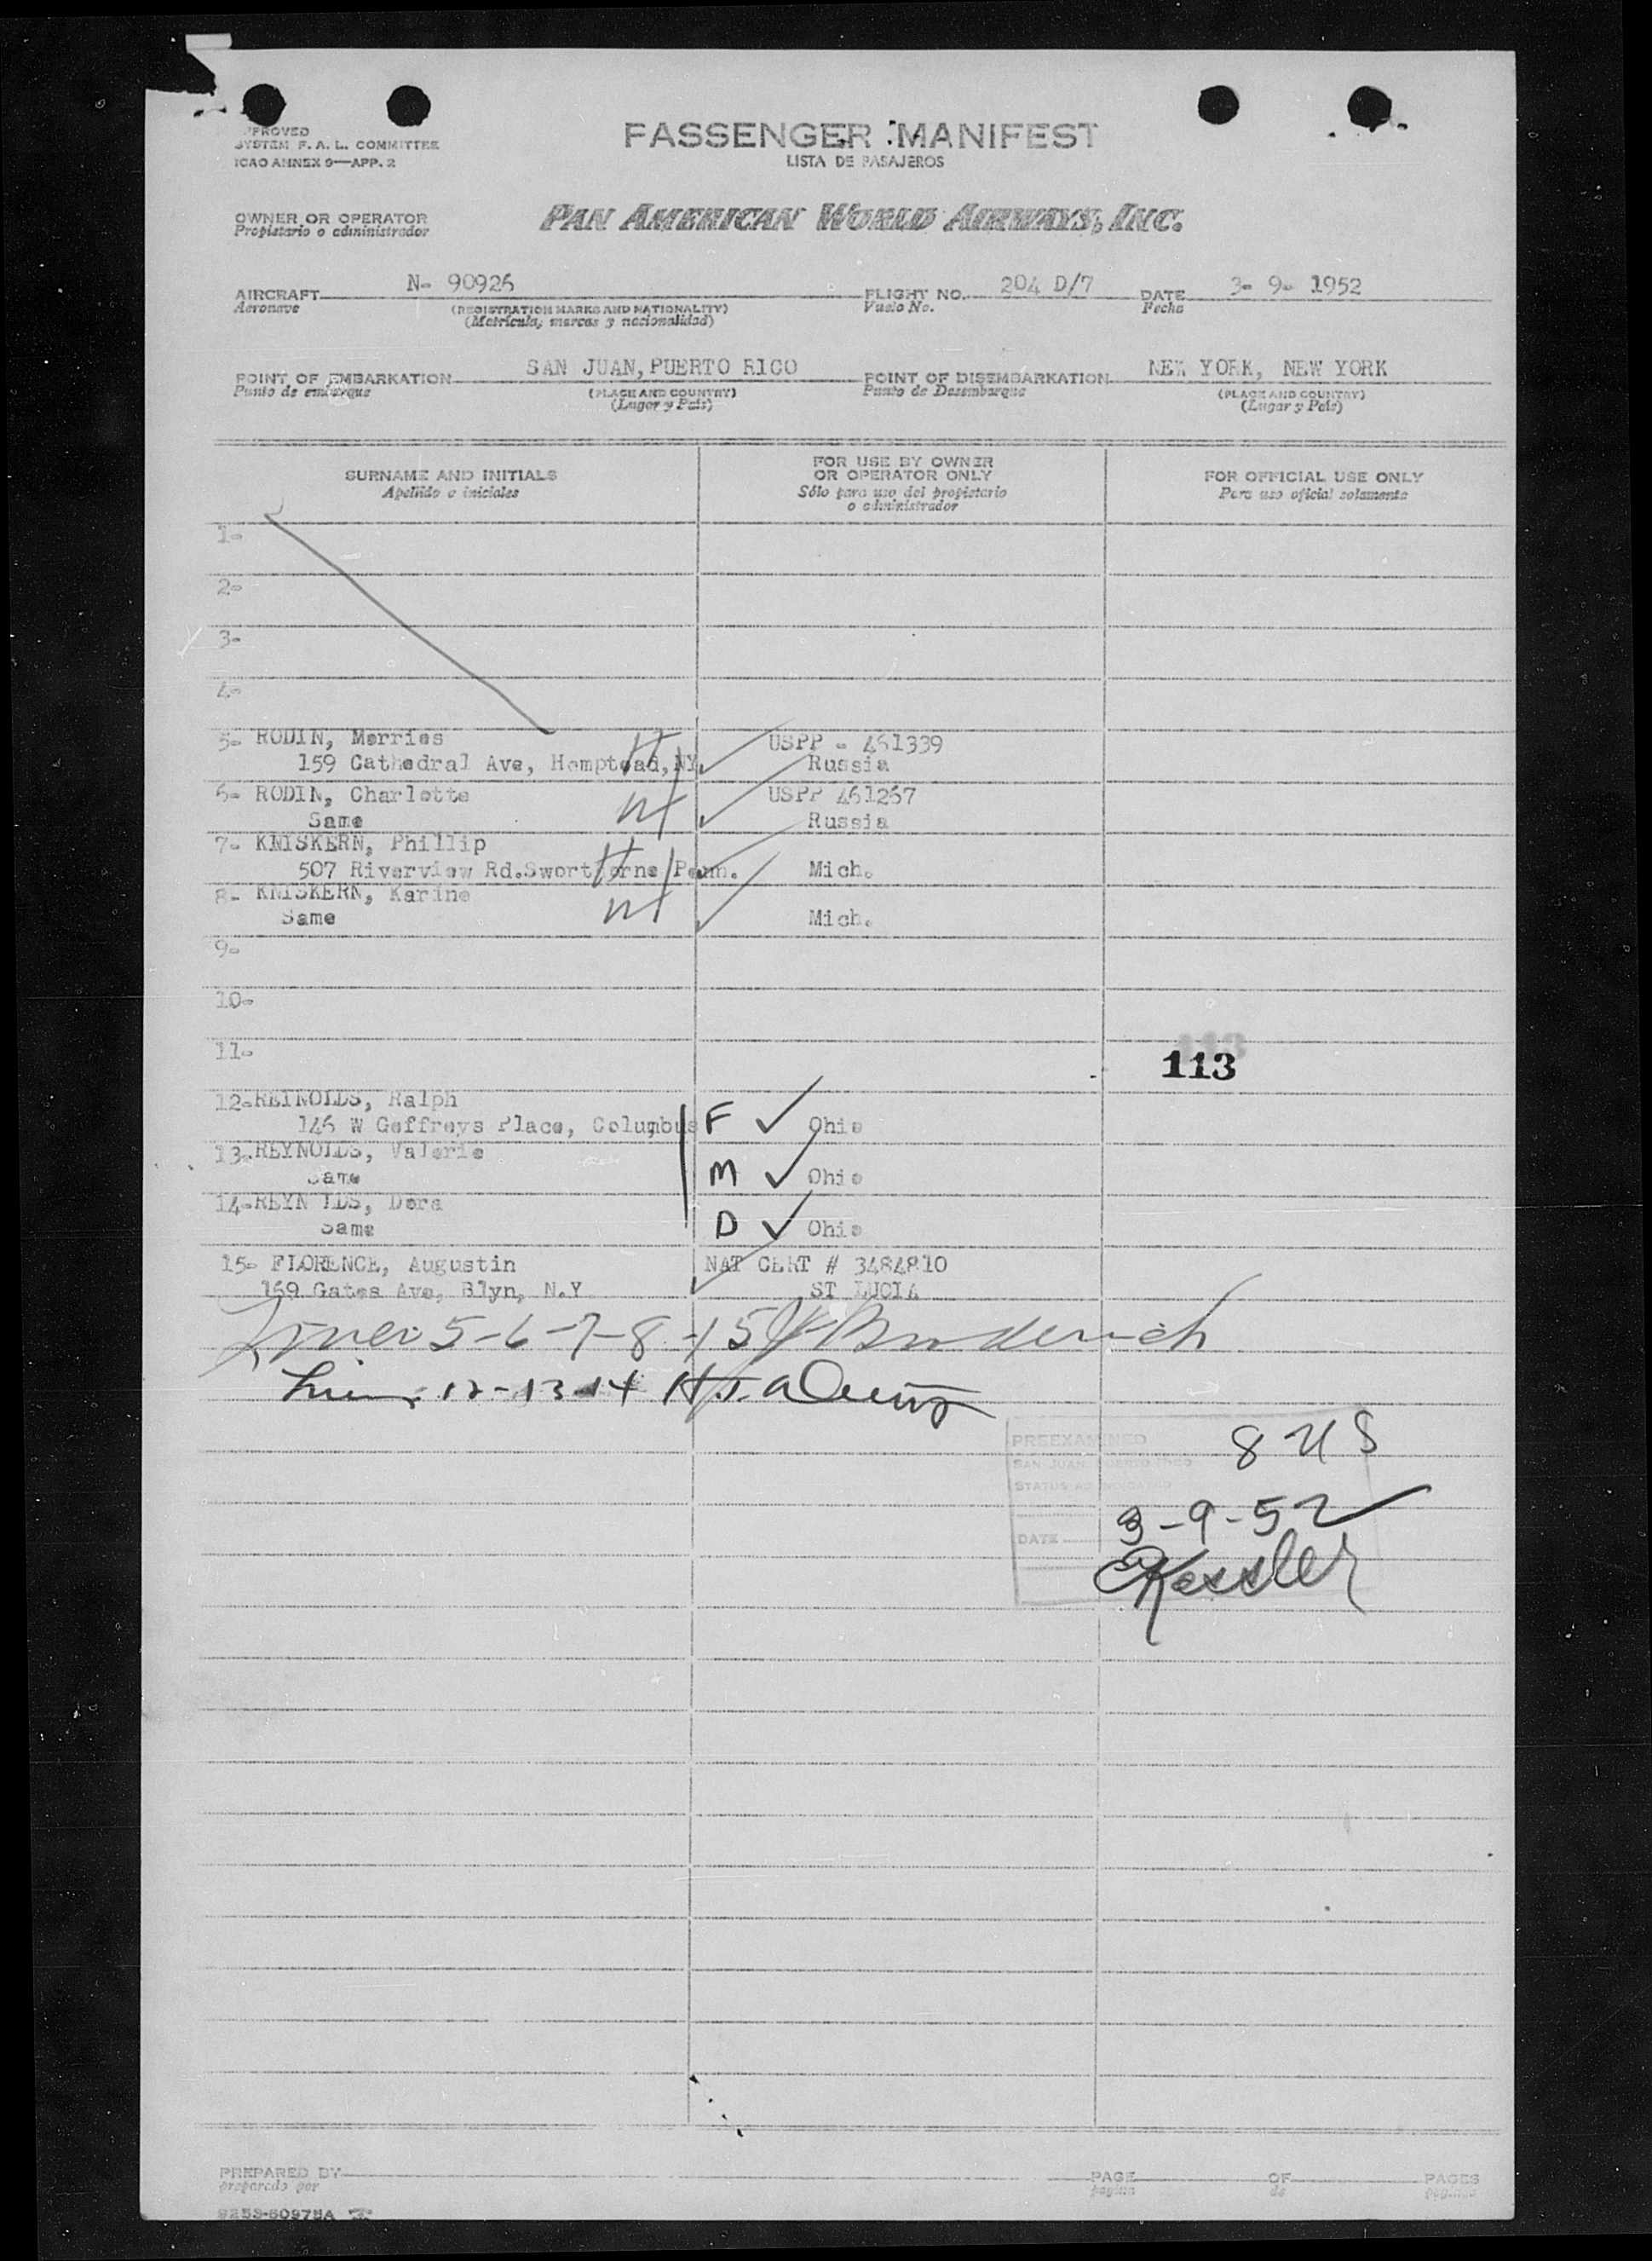 APPROVED
SYSTEM F. A. L. COMMITTEE
ICAO ANNEX 9—APP. 2
PASSENGER MANIFEST
LISTA DE PASAJEROS
OWNER OR OPERATOR
Propietario o administrador
PAN AMERICAN WORLD AIRWAYS, INC.
AIRCRAFT N- 90926 FLIGHT NO. 204 D/7 DATE 3- 9- 1952
Aeronave (REGISTRATION MARKS AND NATIONALITY) Vuelo No. Fecha
(Matricula, marcas y nacionalidad)
POINT OF EMBARKATION SAN JUAN, PUERTO RICO POINT OF DISEMBARKATION NEW YORK, NEW YORK
Punto de embarque (PLACE AND COUNTRY) Punto de Desembarque (PLACE AND COUNTRY)
(Lugar y País) (Lugar y País)
SURNAME AND INITIALS FOR USE BY OWNER OR OPERATOR ONLY FOR OFFICIAL USE ONLY
Apellido e iniciales Sólo para uso del propietario o administrador Para uso oficial solamente
1-
2-
3-
4-
5- RODIN, Morries H USPP - 461339
159 Cathedral Ave, Hemptead, NY Russia
6- RODIN, Charlotte W USPP 461267
Same Russia
7- KNISKERN, Phillip H
507 Riverview Rd. Sworthorne Penn. Mich.
8- KNISKERN, Karine W
Same Mich.
9-
10-
11-
113
12- REYNOLDS, Ralph
146 W Geffreys Place, Columbus F Ohio
13- REYNOLDS, Valerie
Same M Ohio
14- REYN LDS, Dora
Same D Ohio
15- FLORENCE, Augustin NAT CERT # 3484810
169 Gates Ave, Blyn, N.Y ST LUCIA
Lines 5-6-7-8-15
Lines 12-13-14
PREEXAMINED 8 US
SAN JUAN, PUERTO RICO
STATUS AS INDICATED
DATE 3-9-52
Kessler
PREPARED BY PAGE OF PAGES
preparado por pagina de paginas